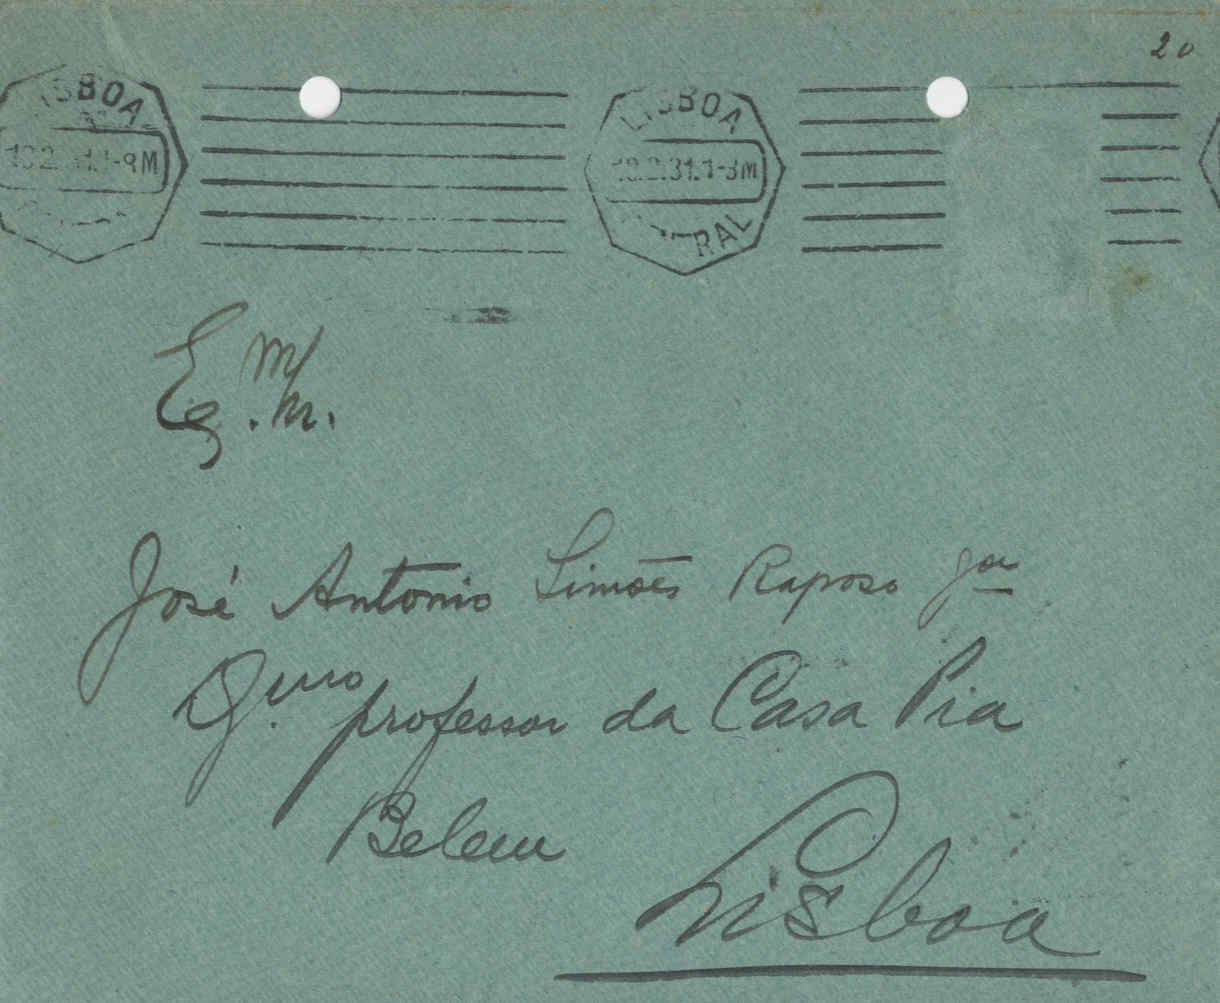 20
LISBOA
LISBOA
1-9M
.2.31.1-3M
TRAL
E mo
José Antonio Simões Raposo jor
D. mo professor da Casa Pia
Belem
Lisboa